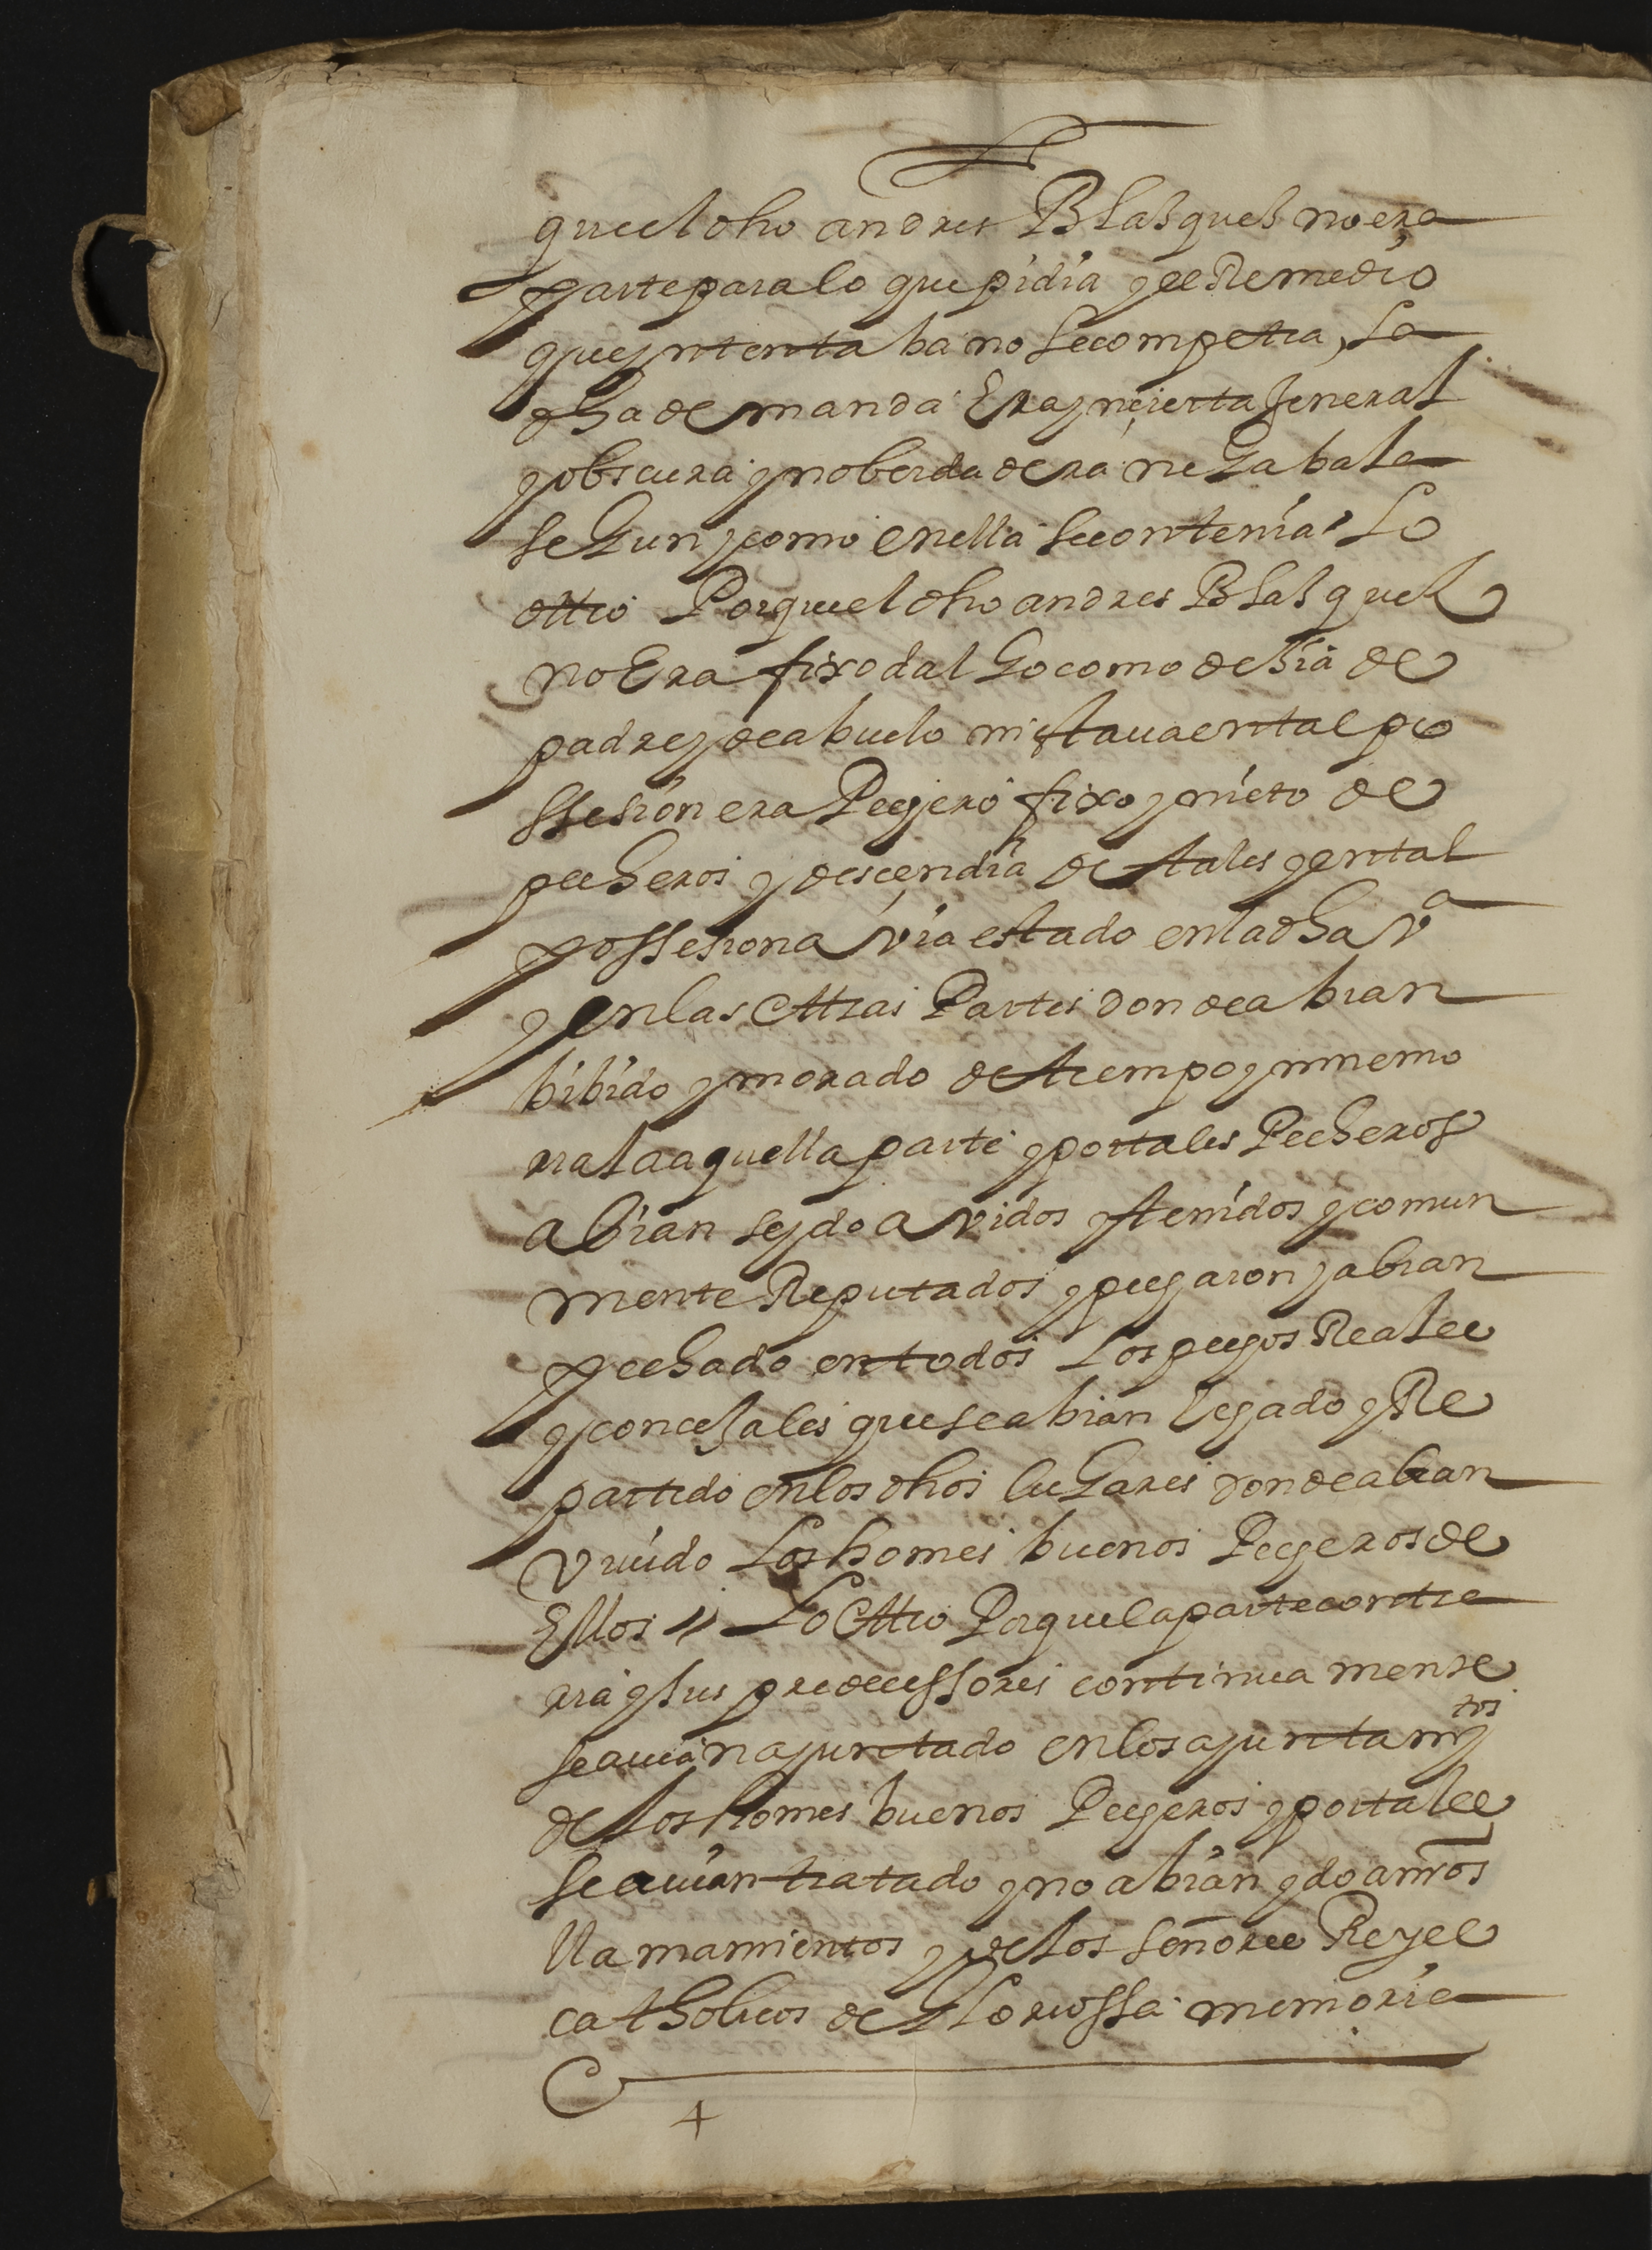 que el dho andres Blasques no era
parte para lo que pidia y el Remedio
que yntentaba no le competia, La
dha demanda Era yncierta Jeneral
y obscura y no berdadera negabala
segun y como en ella se contenia Lo
ottro Porque el dho andres Blasquez
no Era fixodalgo como desia de
padre y de abuelo ni estaua en tal po
ssesion era Pechero fixo y nieto de
pecheros y descendia de tales y en tal
possesion avia estado en la dha vª
y en las ottras Partes donde abian
bibido y morado de tiempo ynmemo
rial a aquella parte y por tales Pecheros
abian seydo avidos y tenidos y comun
mente Reputados y pecharon y abian
pechado en todos Los pechos Reales
y concejales que se abian hechado y Re
partido en los dhos lugares donde abian
viuido Los homes buenos Pecheros de
Ellos // Lo Ottro Porque la parte contra
ria y sus predecessores continuamente
se auian ayuntado en los ayuntamytos
de los homes buenos Pecheros y por tales
se auian tratado y no abian ydo a nros
llamamientos y de los señores Reyes
catholicos de gloriossa memoria